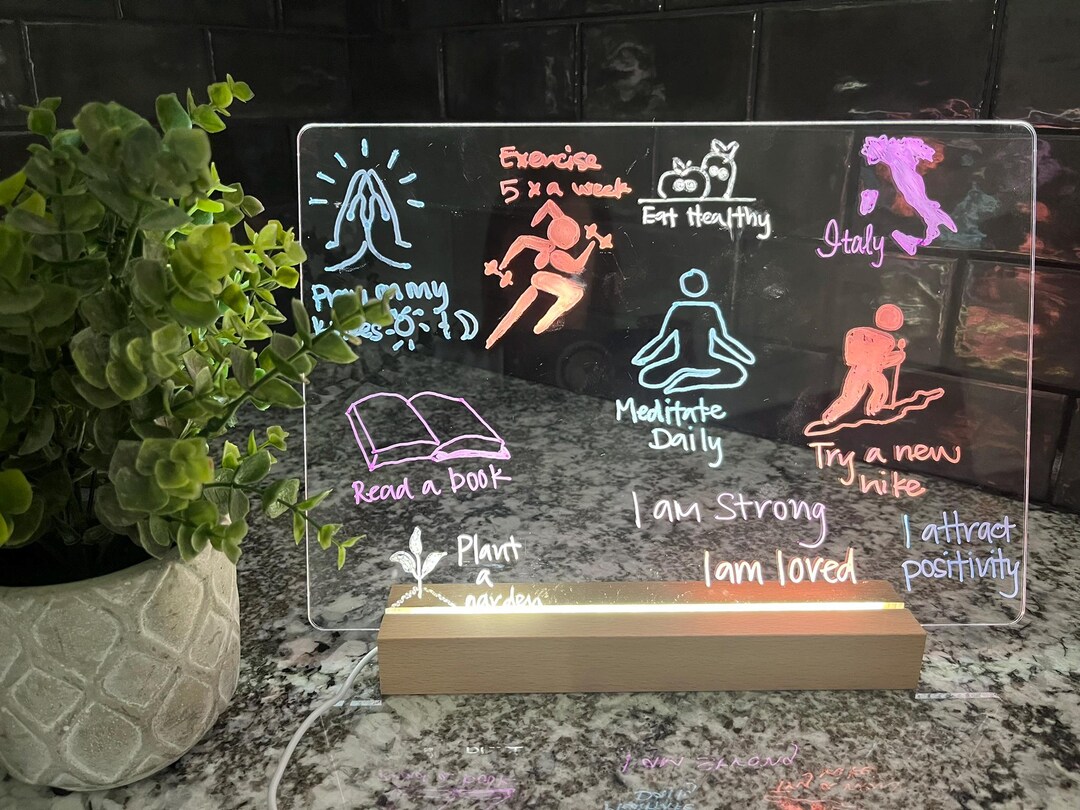 Exercise
5 x a week
Eat Healthy
Italy
my
Meditate
Daily
Try a new
hike
Read a book
I am Strong
I am loved
I attract
positivity
Plant
a
garden